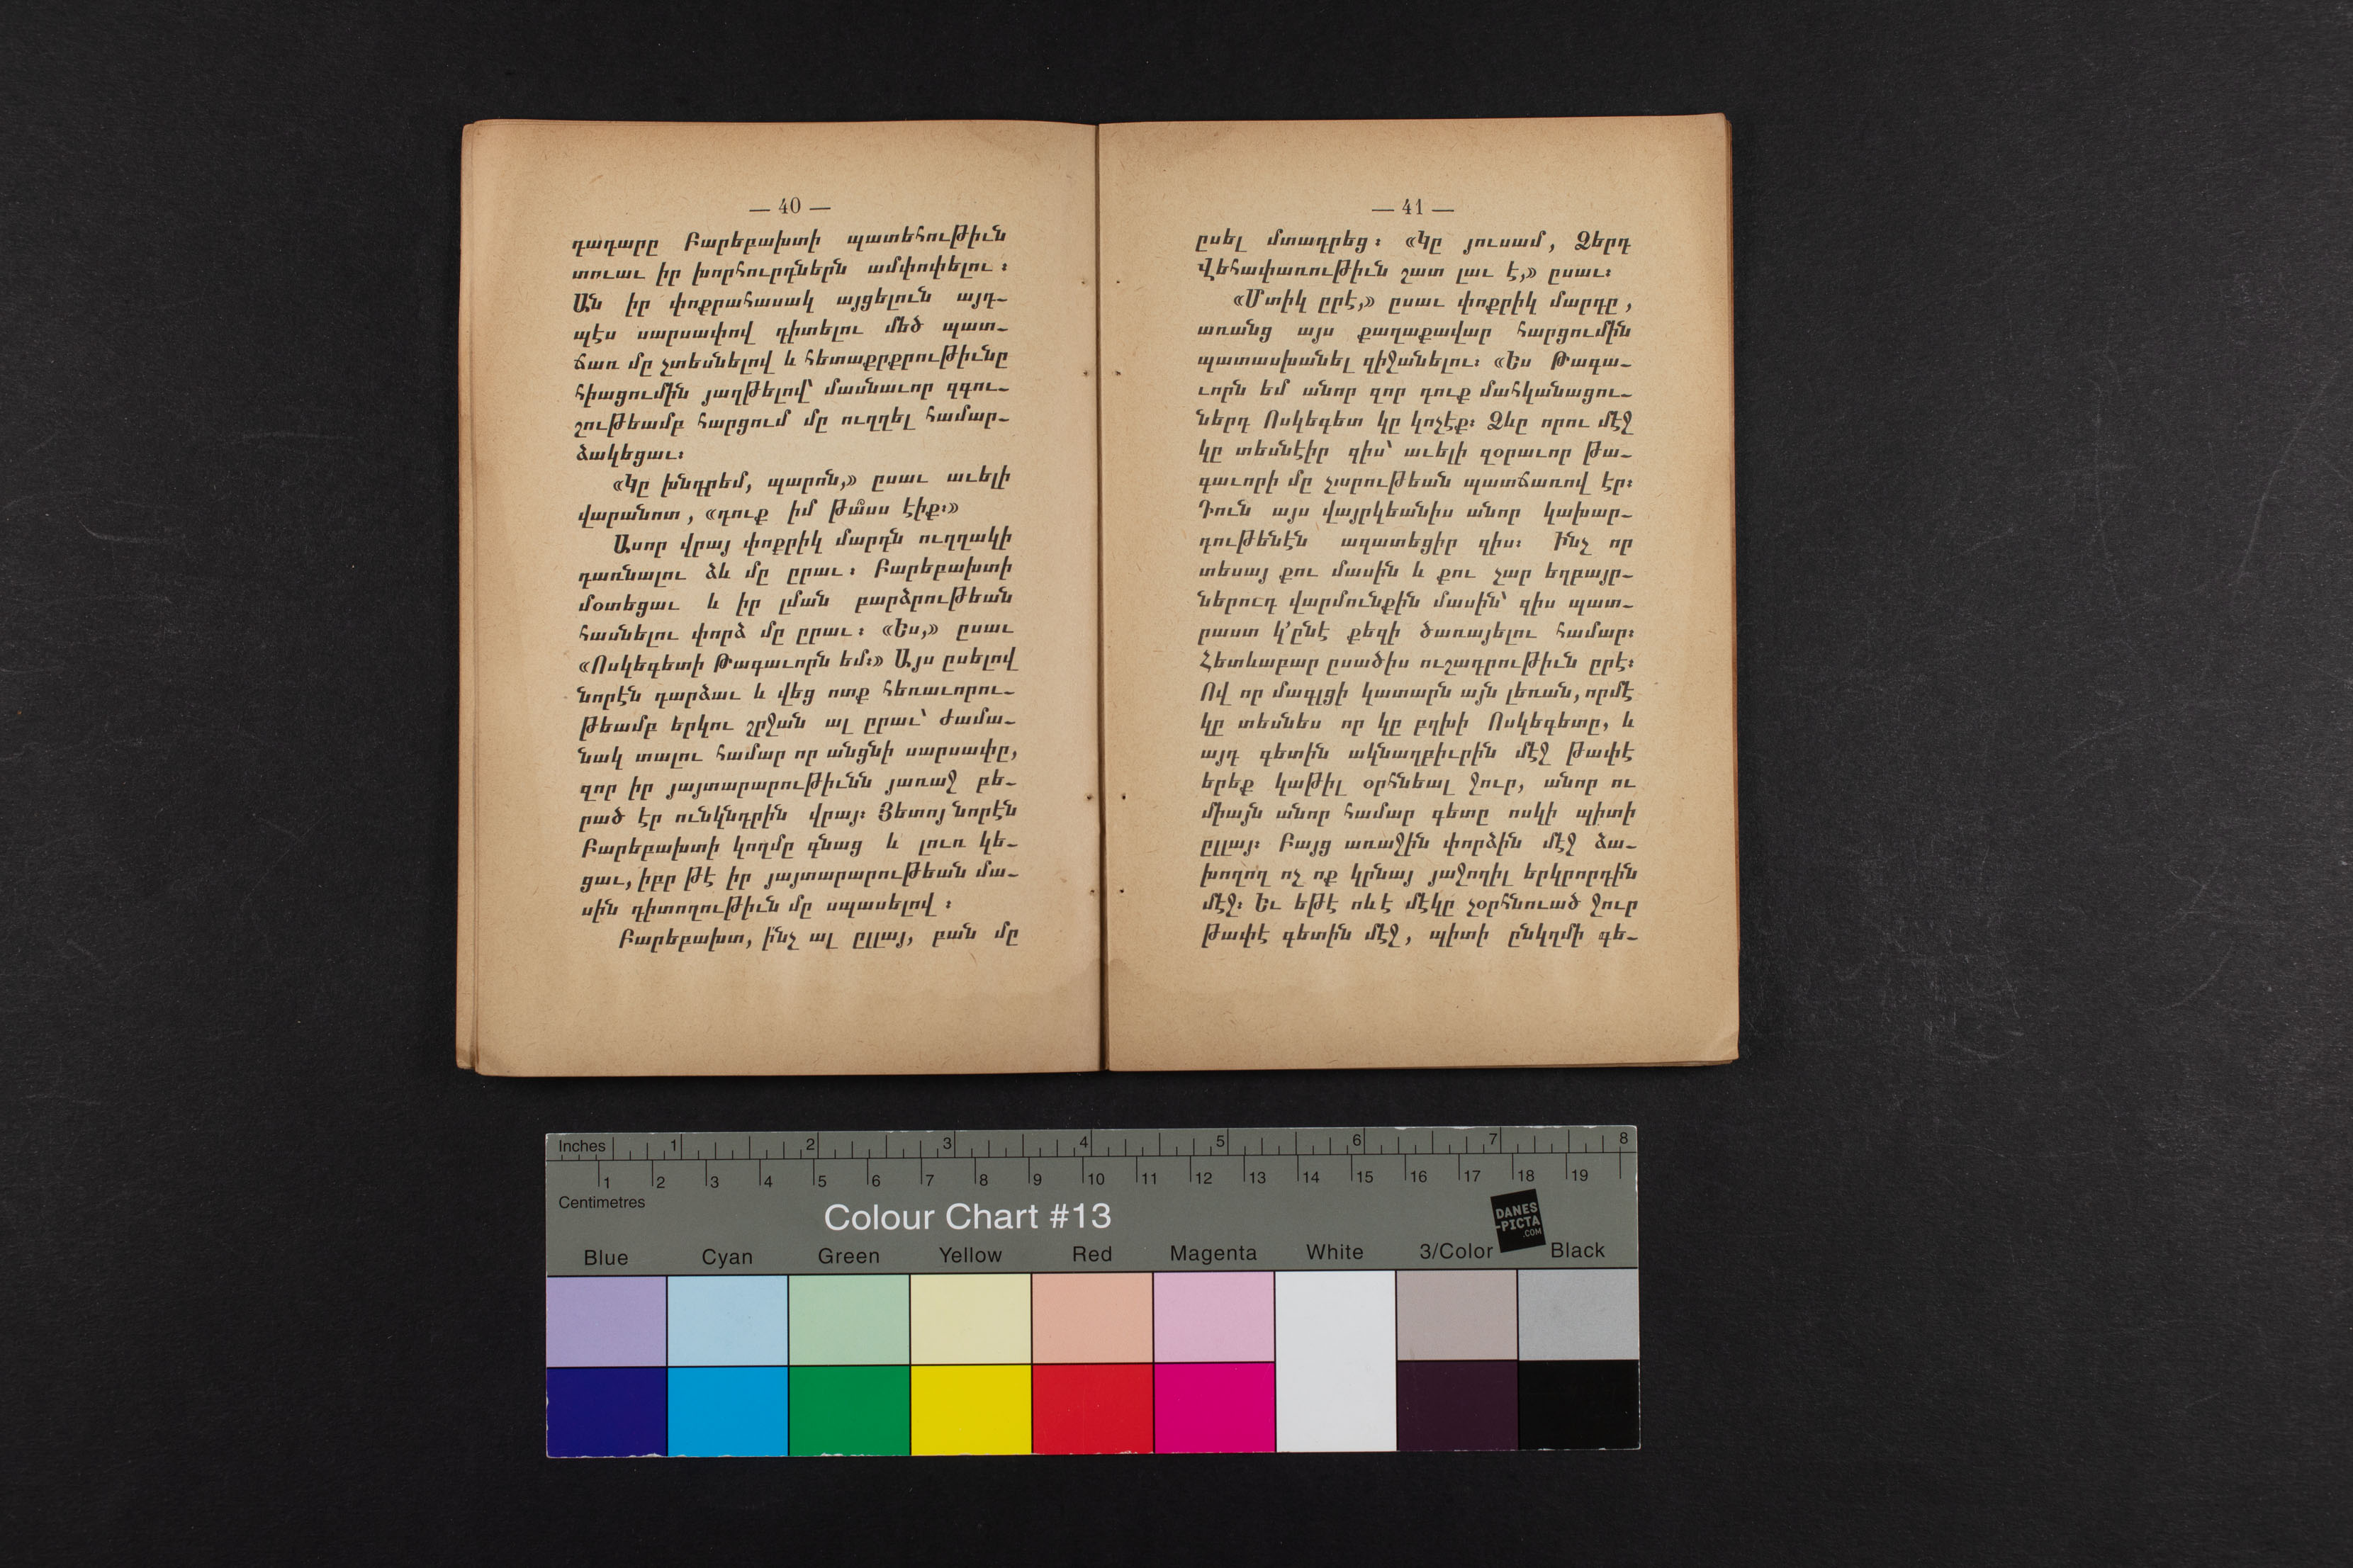 — 40 —
դադարը Բարեբախտի պատեհութիւն
տուաւ իր խորհուրդներն ամփոփելու :
Ան իր փոքրահասակ այցելուն այդ-
պէս սարսափով դիտելու մեծ պատ-
ճառ մը չտեսնելով և հետաքրքրութիւնը
հիացումին յաղթելով՝ մասնաւոր զգու-
շութեամբ հարցում մը ուղղել համար-
ձակեցաւ։
«Կը խնդրեմ, պարոն,» ըսաւ աւելի
վարանոտ, «դուք իմ թա՞սս էիք։»
Ասոր վրայ փոքրիկ մարդն ուղղակի
դառնալու ձև մը ըրաւ : Բարեբախտի
մօտեցաւ և իր լման բարձրութեան
հասնելու փորձ մը ըրաւ : «Ես,» ըսաւ
«Ոսկեգետի Թագաւորն եմ։» Այս ըսելով
նորէն դարձաւ և վեց ոտք հեռաւորու-
թեամբ երկու շրջան ալ ըրաւ՝ ժամա-
նակ տալու համար որ անցնի սարսափը,
զոր իր յայտարարութիւնն յառաջ բե-
րած էր ունկնդրին վրայ։ Յետոյ նորէն
Բարեբախտի կողմը գնաց և լուռ կե-
ցաւ, իբր թէ իր յայտարարութեան մա-
սին դիտողութիւն մը սպասելով :
Բարեբախտ, ի՛նչ ալ ըլլայ, բան մը
— 41 —
ըսել մտադրեց : «Կը յուսամ, Ձերդ
Վեհափառութիւն շատ լաւ է,» ըսաւ։
«Մտիկ ըրէ,» ըսաւ փոքրիկ մարդը,
առանց այս քաղաքավար հարցումին
պատասխանել զիջանելու։ «Ես Թագա-
ւորն եմ անոր զոր դուք մահկանացու-
ներդ Ոսկեգետ կը կոչէք։ Ձևը որու մէջ
կը տեսնէիր զիս՝ աւելի զօրաւոր թա-
գաւորի մը չարութեան պատճառով էր։
Դուն այս վայրկեանիս անոր կախար-
դութենէն ազատեցիր զիս։ Ինչ որ
տեսայ քու մասին և քու չար եղբայր-
ներուդ վարմունքին մասին՝ զիս պատ-
րաստ կ՚ընէ քեզի ծառայելու համար։
Հետևաբար ըսածիս ուշադրութիւն ըրէ։
Ով որ մագլցի կատարն այն լեռան, որմէ
կը տեսնես որ կը բղխի Ոսկեգետը, և
այդ գետին ակնաղբիւրին մէջ թափէ
երեք կաթիլ օրհնեալ ջուր, անոր ու
միայն անոր համար գետը ոսկի պիտի
ըլլայ։ Բայց առաջին փորձին մէջ ձա-
խողող ոչ ոք կրնայ յաջողիլ երկրորդին
մէջ։ Եւ եթէ ոևէ մէկը չօրհնուած ջուր
թափէ գետին մէջ, պիտի ընկղմի գե-
Inches 1 2 3 4 5 6 7 8
1 2 3 4 5 6 7 8 9 10 11 12 13 14 15 16 17 18 19
Centimetres
Colour Chart #13
DANES
-PICTA
.COM
Blue Cyan Green Yellow Red Magenta White 3/Color Black